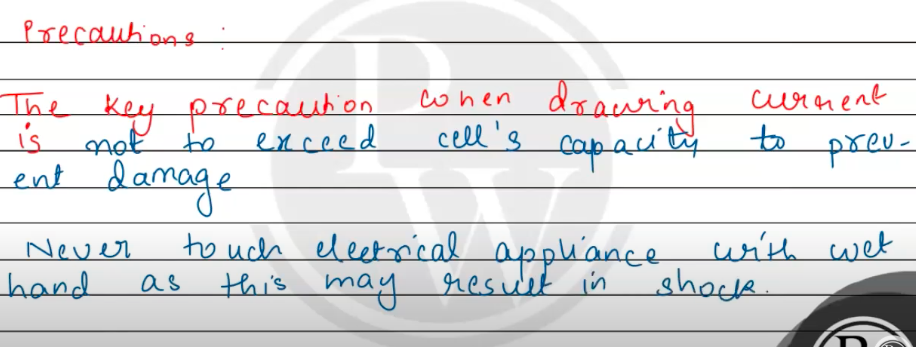 Precautions :
The key precaution when drawing current
is not to exceed cell's capacity to prev-
ent damage
Never touch electrical appliance with wet
hand as this may result in shock.